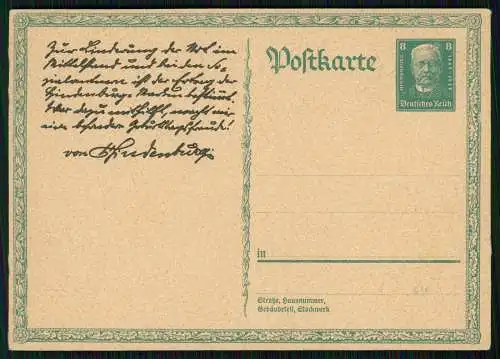 Zur Linderung der Not im
Mittelstand und bei den So-
zialrentnern ist der Ertrag der
Hindenburg-Marken bestimmt.
Wer dazu mithilft, macht mir
eine besondere Geburtstagsfreude!
von Hindenburg
Postkarte
8 8
Deutsches Reich
in
Straße, Hausnummer,
Gebäudeteil, Stockwerk